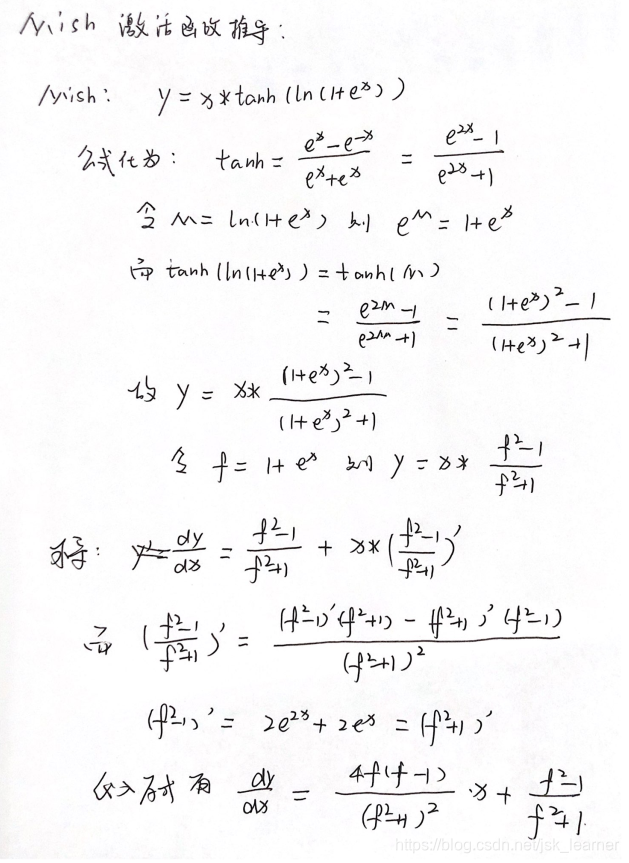 Mish 激活函数推导:
Mish: y = x*tanh(ln(1+e^x))
公式化为: tanh = (e^x-e^-x)/(e^x+e^x) = (e^2x-1)/(e^2x+1)
令 M = ln(1+e^x) 则 e^M = 1+e^x
而 tanh(ln(1+e^x)) = tanh(M)
= (e^2M-1)/(e^2M+1) = ((1+e^x)^2-1)/((1+e^x)^2+1)
故 y = x* ((1+e^x)^2-1)/((1+e^x)^2+1)
令 f = 1+e^x 则 y = x* (f^2-1)/(f^2+1)
求导: dy/dx = (f^2-1)/(f^2+1) + x*((f^2-1)/(f^2+1))'
而 ((f^2-1)/(f^2+1))' = ((f^2-1)'(f^2+1) - (f^2+1)'(f^2-1))/(f^2+1)^2
(f^2-1)' = 2e^2x + 2e^x = (f^2+1)'
代入原式有 dy/dx = 4f(f-1)/(f^2+1)^2 ·x + (f^2-1)/(f^2+1).
https://blog.csdn.net/jsk_learner